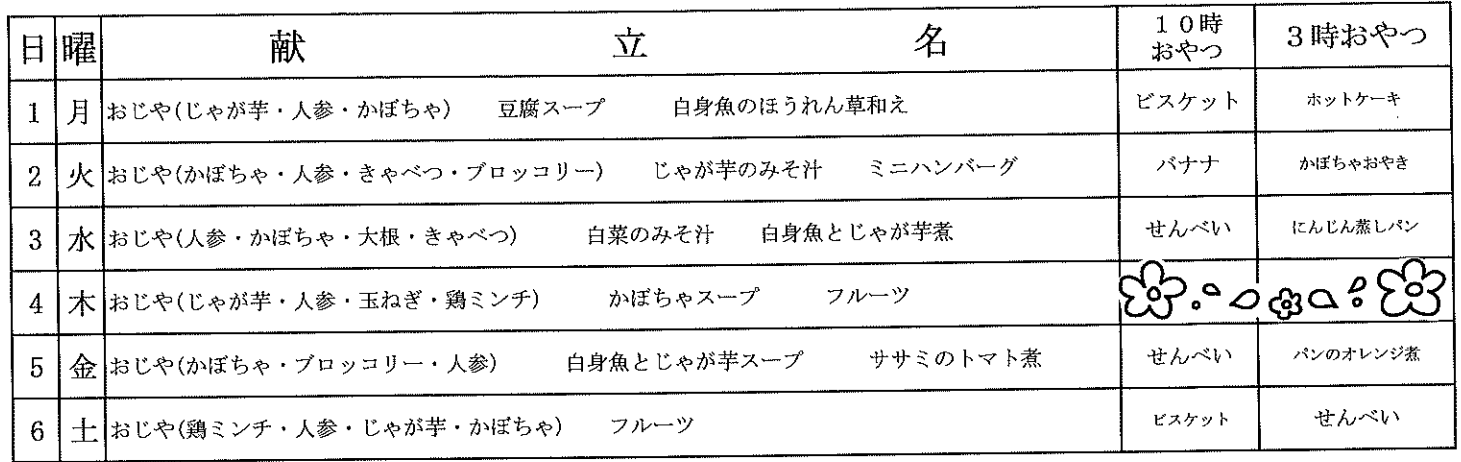 日 曜 献 立 名 10時おやつ 3時おやつ
1 月 おじや(じゃが芋・人参・かぼちゃ) 豆腐スープ 白身魚のほうれん草和え ビスケット ホットケーキ
2 火 おじや(かぼちゃ・人参・きゃべつ・ブロッコリー) じゃが芋のみそ汁 ミニハンバーグ バナナ かぼちゃおやき
3 水 おじや(人参・かぼちゃ・大根・きゃべつ) 白菜のみそ汁 白身魚とじゃが芋煮 せんべい にんじん蒸しパン
4 木 おじや(じゃが芋・人参・玉ねぎ・鶏ミンチ) かぼちゃスープ フルーツ
5 金 おじや(かぼちゃ・ブロッコリー・人参) 白身魚とじゃが芋スープ ササミのトマト煮 せんべい パンのオレンジ煮
6 土 おじや(鶏ミンチ・人参・じゃが芋・かぼちゃ) フルーツ ビスケット せんべい